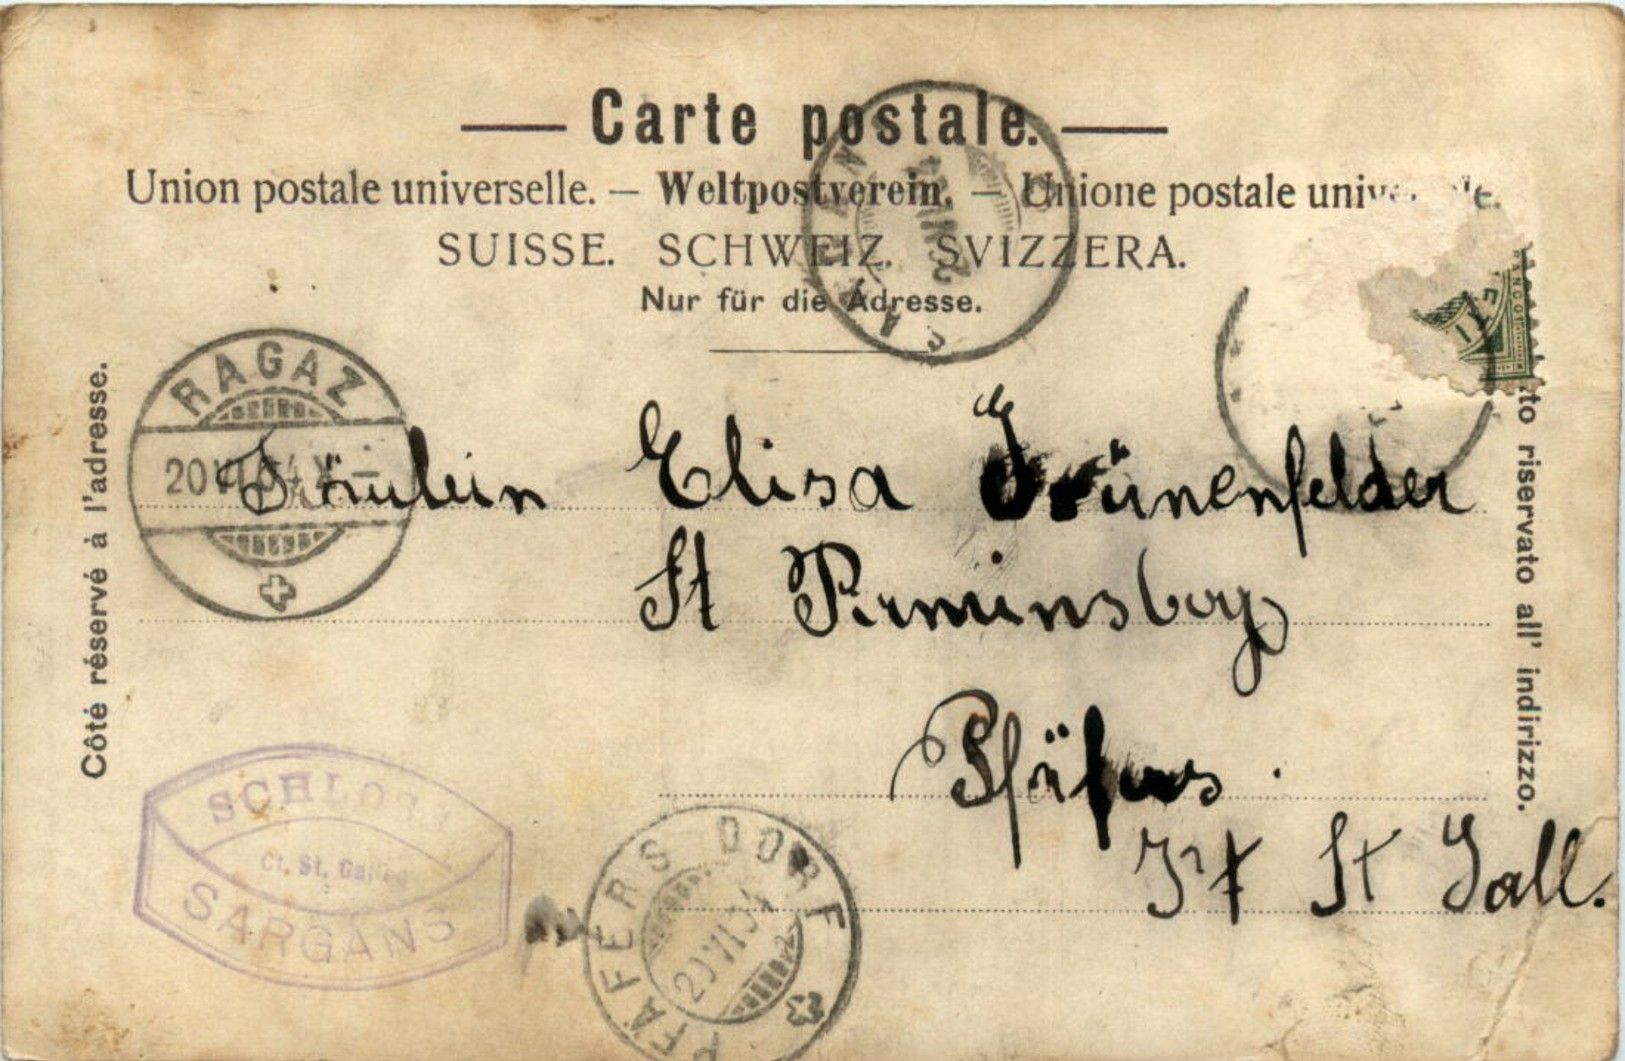 Carte postale.
Union postale universelle. – Weltpostverein. – Unione postale
SUISSE. SCHWEIZ. SVIZZERA.
Nur für die Adresse.
Côté réservé à l'adresse.
riservato all' indirizzo.
RAGAZ
Fräulein Elisa Grünenfelder
St Pirminsberg
Pfäfers
Kt St Gall.
SCHLOSS
Ct. St. Gallen
SARGANS
PFÄFERS DORF
20 VI 04
SARGANS